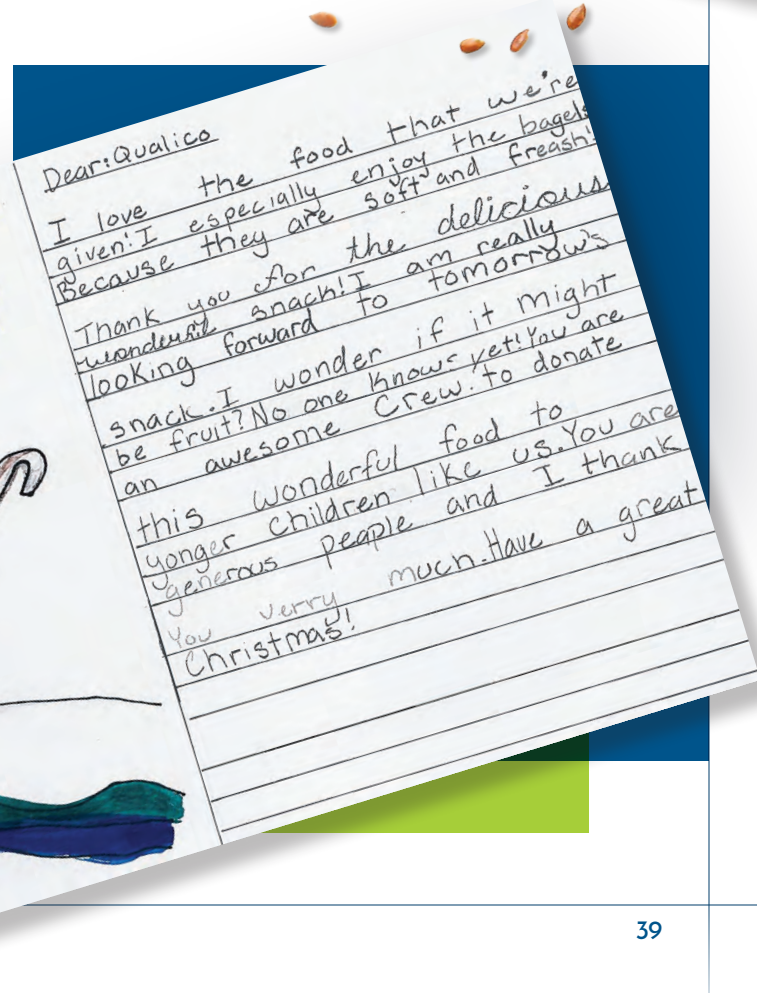 Dear:Qualico
I love the food that we're
given! I especially enjoy the bagels
Because they are soft and freash!
Thank you for the delicious
wonderful snack! I am really
looking forward to tomorrow's
snack. I wonder if it might
be fruit? No one knows yet! You are
an awesome Crew. to donate
this wonderful food to
yonger children like us. You are
generous peaple and I thank
You verry much. Have a great
Christmas!
39